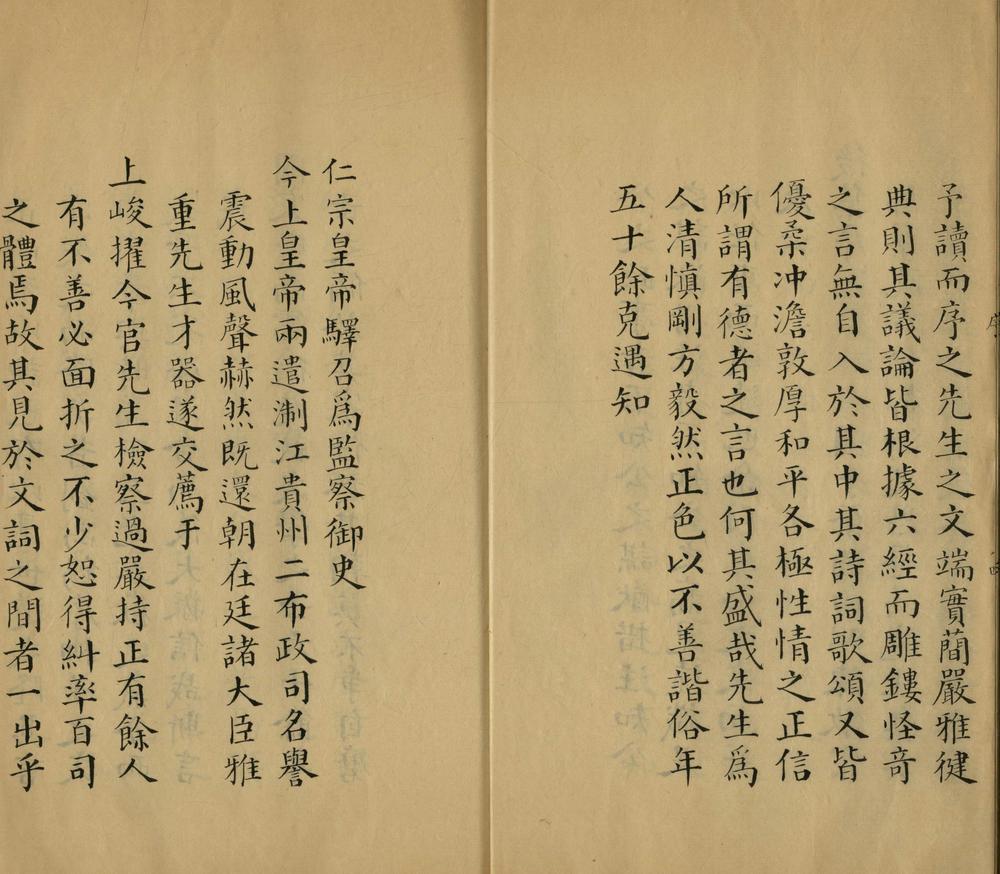 予讀而序之先生之文端實蕳嚴雅健
典則其議論皆根據六經而雕鏤怪奇
之言無自入於其中其詩詞歌頌又皆
優柔冲澹敦厚和平各極性情之正信
所謂有德者之言也何其盛哉先生爲
人清慎剛方毅然正色以不善諧俗年
五十餘克遇知
仁宗皇帝驛召爲監察御史
今上皇帝兩遣淛江貴州二布政司名譽
震動風聲赫然既還朝在廷諸大臣雅
重先生才器遂交薦于
上峻擢今官先生檢察過嚴持正有餘人
有不善必面折之不少恕得糾率百司
之體焉故其見於文詞之間者一出乎